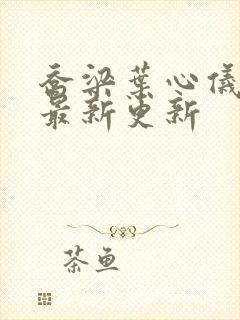 乔梁葉心儀
最新更新
茶鱼